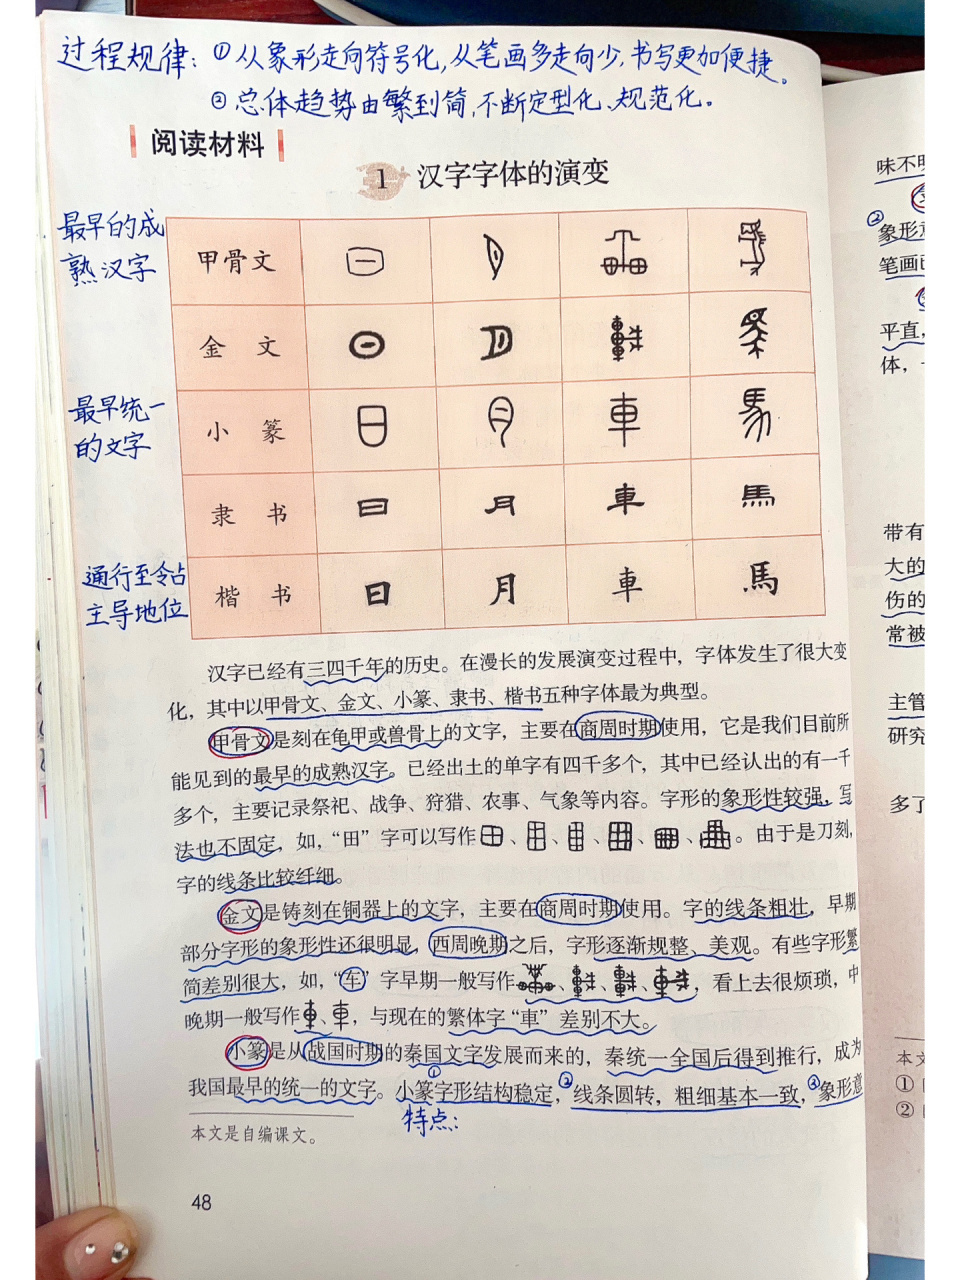 过程规律：①从象形走向符号化，从笔画多走向少，书写更加便捷。
②总体趋势由繁到简，不断定型化、规范化。
阅读材料
1 汉字字体的演变
最早的成
熟汉字
甲骨文
金 文
最早统一
的文字
小 篆 日 月 車 馬
隶 书 日 月 車 馬
通行至今占
主导地位
楷 书 日 月 車 馬
汉字已经有三四千年的历史。在漫长的发展演变过程中，字体发生了很大变
化，其中以甲骨文、金文、小篆、隶书、楷书五种字体最为典型。
甲骨文是刻在龟甲或兽骨上的文字，主要在商周时期使用，它是我们目前所
能见到的最早的成熟汉字。已经出土的单字有四千多个，其中已经认出的有一千
多个，主要记录祭祀、战争、狩猎、农事、气象等内容。字形的象形性较强，写
法也不固定，如，“田”字可以写作、、、、、。由于是刀刻，
字的线条比较纤细。
金文是铸刻在铜器上的文字，主要在商周时期使用。字的线条粗壮，早期
部分字形的象形性还很明显，西周晚期之后，字形逐渐规整、美观。有些字形繁
简差别很大，如，“车”字早期一般写作、、、，看上去很烦琐，中
晚期一般写作、車，与现在的繁体字“車”差别不大。
小篆是从战国时期的秦国文字发展而来的，秦统一全国后得到推行，成为
我国最早的统一的文字。①小篆字形结构稳定，②线条圆转，粗细基本一致，③象形意
特点：
本文是自编课文。
48
味不
②
象形意
笔画已
平直，
体，
带有
大的
伤的
常被
主管
研究
多了
本文
①
②